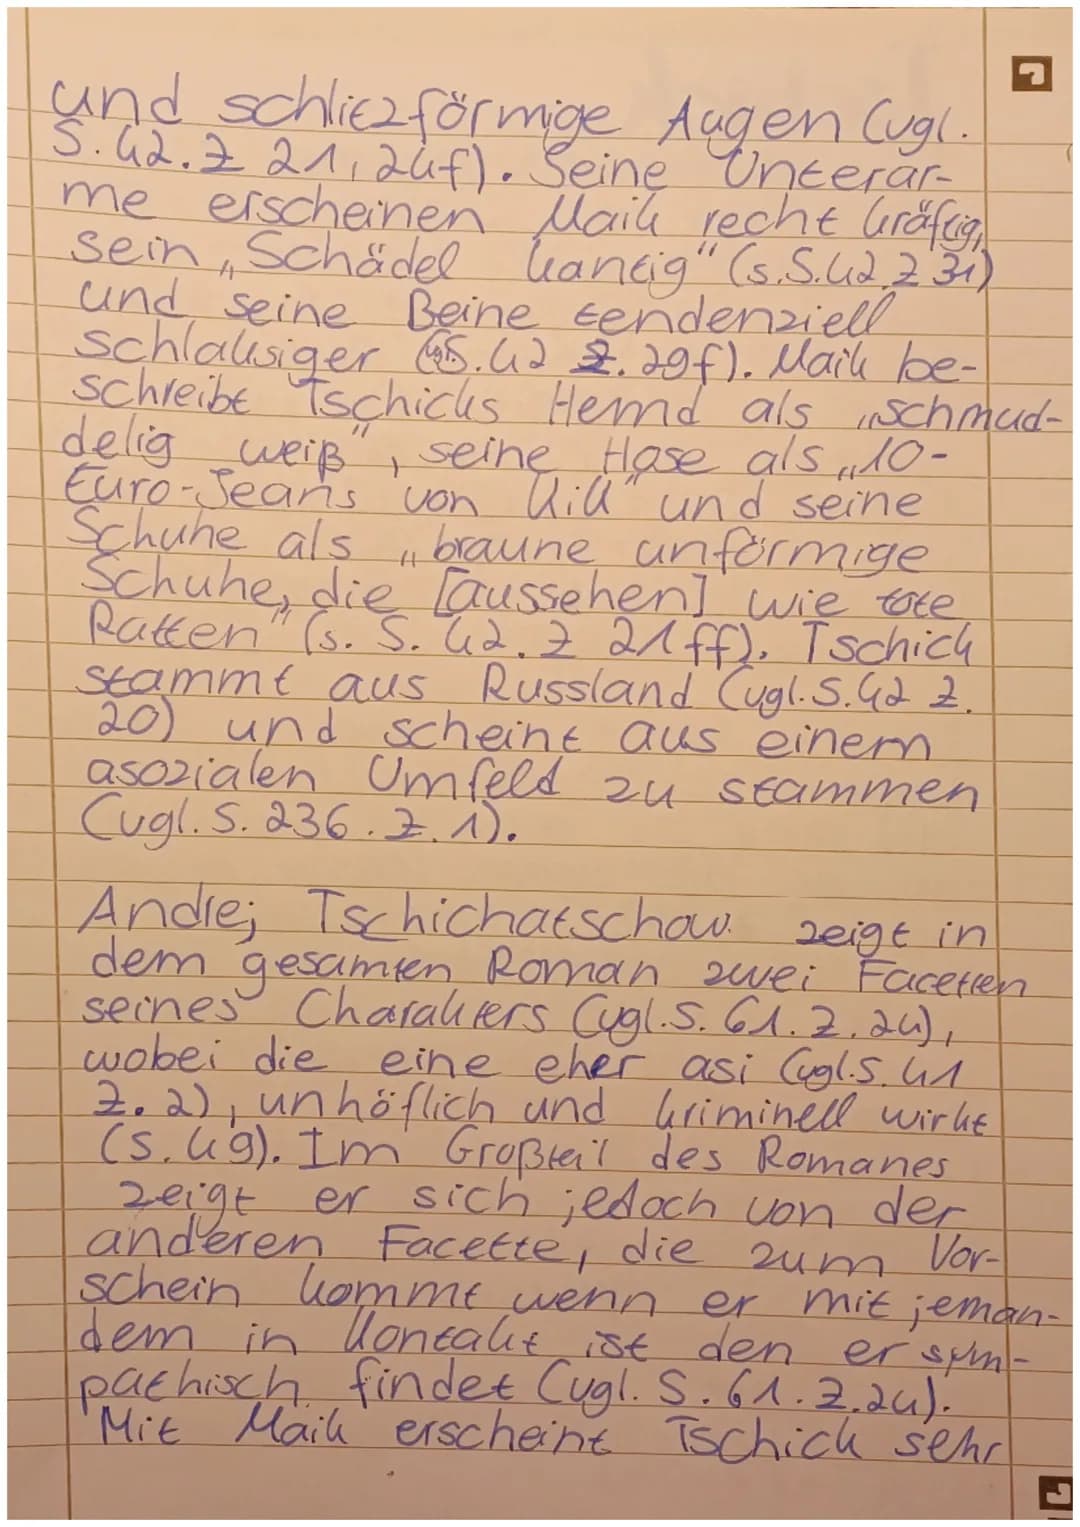 und schlitzförmige Augen (vgl.
S. 42. Z 21, 24f). Seine Unterar-
me erscheinen Maik recht kräftig,
sein „Schädel kantig" (s. S. 42 Z 31)
und seine Beine tendenziell
schlaksiger (vgl. S. 42 Z. 29f). Maik be-
schreibt Tschicks Hemd als „schmud-
delig weiß", seine Hose als „10-
Euro-Jeans von KiK" und seine
Schuhe als „braune unförmige
Schuhe, die [aussehen] wie tote
Ratten" (s. S. 42. Z 21ff). Tschick
stammt aus Russland (vgl. S. 42 Z.
20) und scheint aus einem
asozialen Umfeld zu stammen
(vgl. S. 236. Z. 1).
Andrej Tschichatschow zeigt in
dem gesamten Roman zwei Facetten
seines Charakters (vgl. S. 61. Z. 24),
wobei die eine eher asi (vgl. S. 41
Z. 2), unhöflich und kriminell wirkt
(S. 49). Im Großteil des Romanes
zeigt er sich jedoch von der
anderen Facette, die zum Vor-
schein kommt wenn er mit jeman-
dem in Kontakt ist den er sym-
pathisch findet (vgl. S. 61. Z. 24).
Mit Maik erscheint Tschick sehr